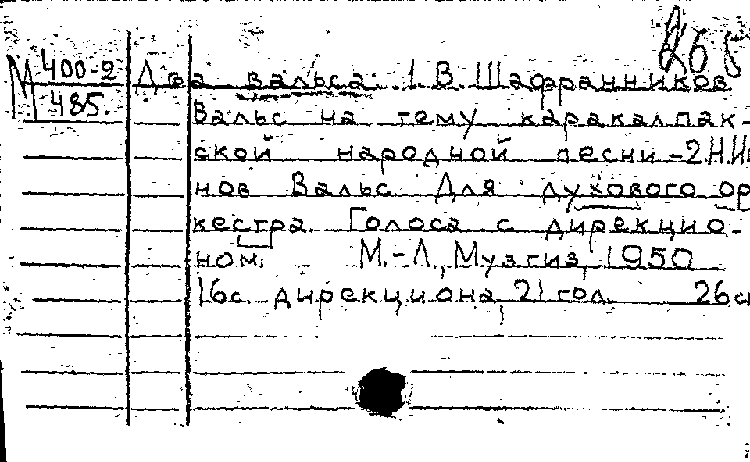 М 400-2 Два вальса. 1 В. Шафранников
485. Вальс на тему каракалпак-
ской народной песни - 2 Н. И
нов Вальс Для духового ор
кестра. Голоса с дирекцио-
ном. М.-Л., Музгиз, 1950
16с. дирекциона, 21 гол. 26с